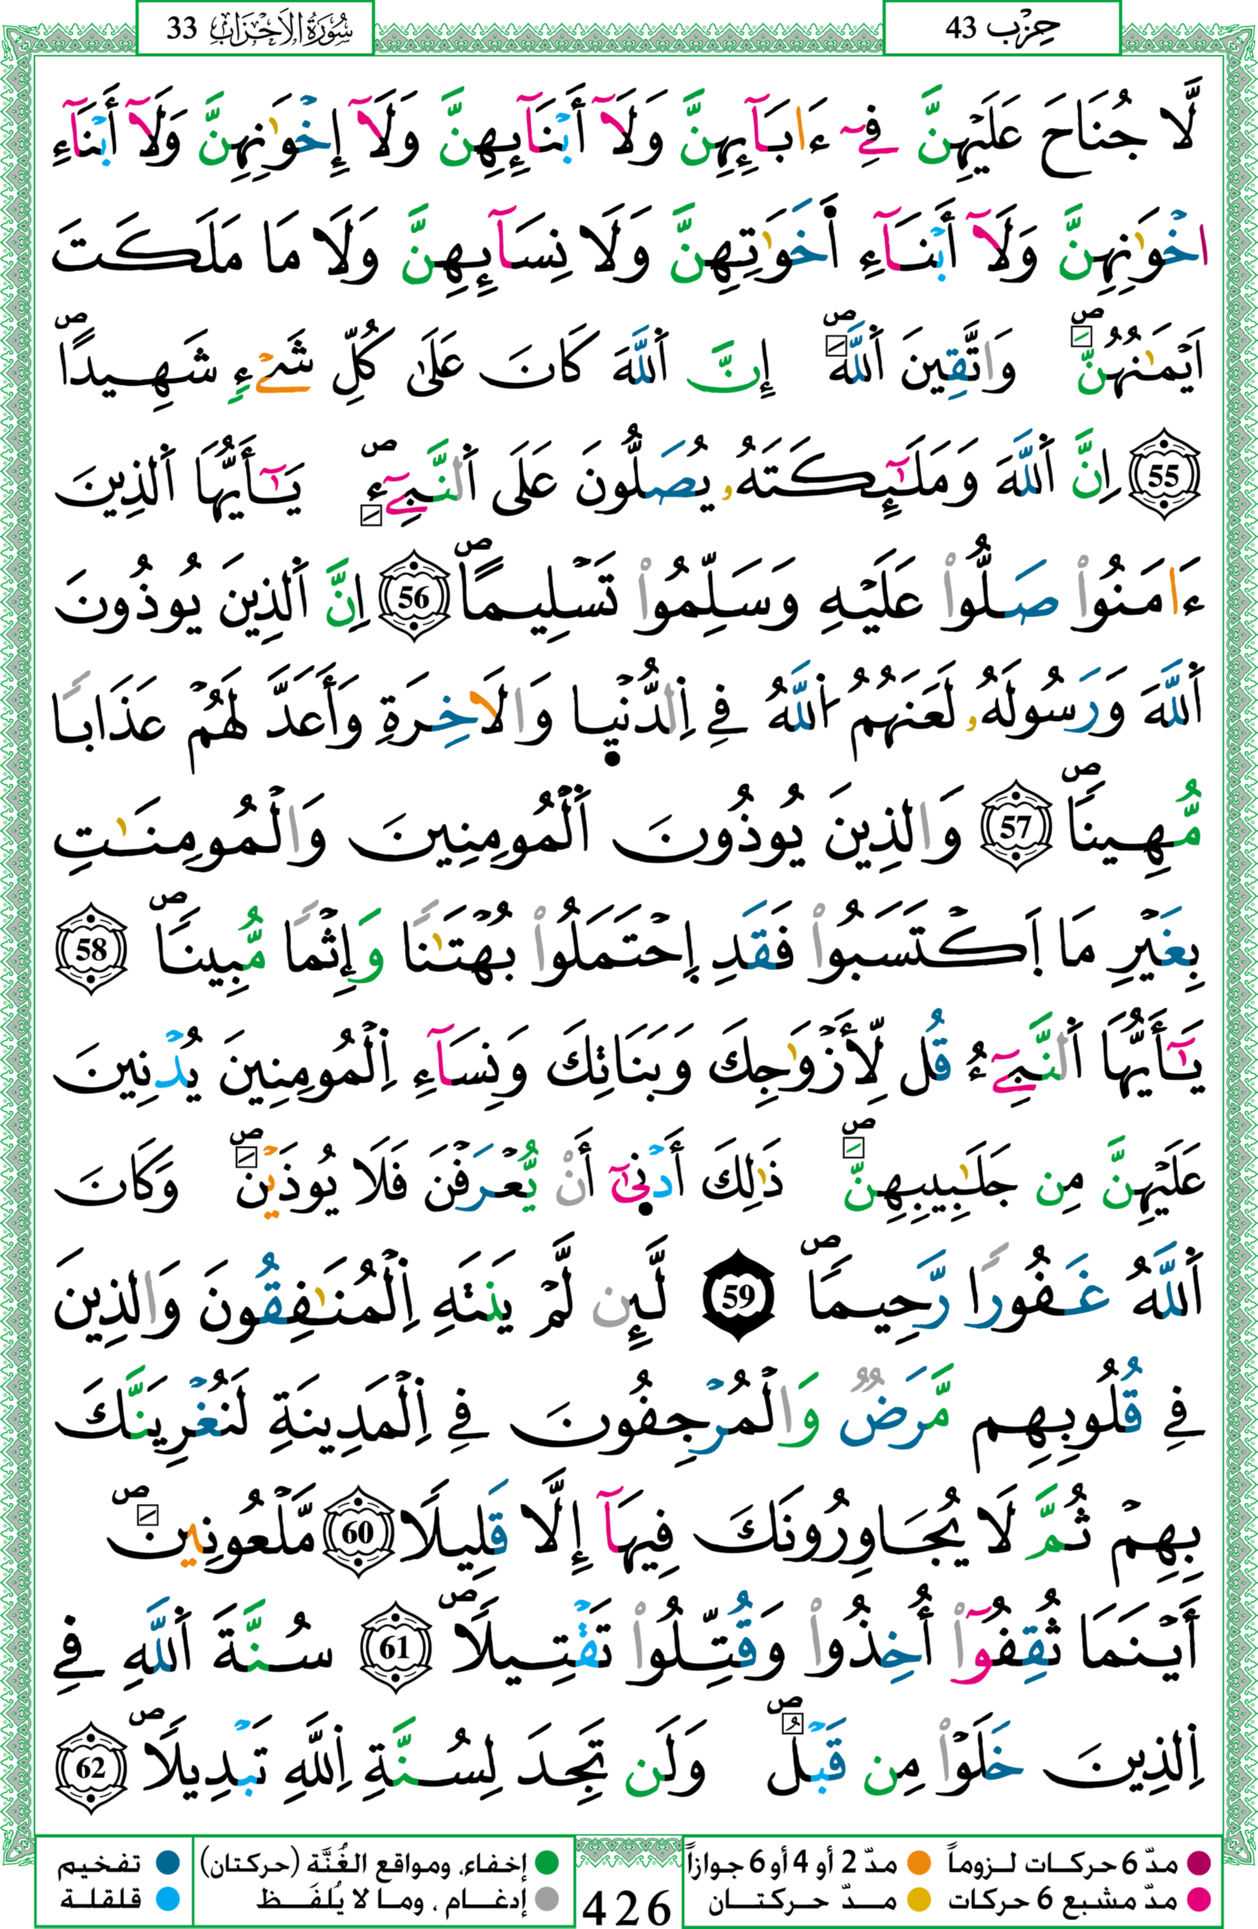 حِزْب 43
سُورَةُ الأَحْزَابِ 33
لَّا جُنَاحَ عَلَيْهِنَّ فِےٓ ءَابَآئِهِنَّ وَلَآ أَبْنَآئِهِنَّ وَلَآ إِخْوَٰنِهِنَّ وَلَآ أَبْنَآءِ
اخْوَٰنِهِنَّ وَلَآ أَبْنَآءِ اخَوَٰتِهِنَّ وَلَا نِسَآئِهِنَّ وَلَا مَا مَلَكَتَ
اَيْمَٰنُهُنَّۖ وَاتَّقِينَ اَللَّهَۖ إِنَّ اَللَّهَ كَانَ عَلَىٰ كُلِّ شَےْءٖ شَهِيداًۖ
55 اِنَّ اَللَّهَ وَمَلَٰٓئِكَتَهُۥ يُصَلُّونَ عَلَى اَلنَّبِےٓءِۖ يَٰٓأَيُّهَا اَلذِينَ
ءَامَنُواْ صَلُّواْ عَلَيْهِ وَسَلِّمُواْ تَسْلِيماًۖ 56 اِنَّ اَلذِينَ يُوذُونَ
اَللَّهَ وَرَسُولَهُۥ لَعَنَهُمُ اُللَّهُ فِے اِلدُّنْي۪ا وَالَاخِرَةِ وَأَعَدَّ لَهُمْ عَذَاباً
مُّهِيناًۖ 57 وَالذِينَ يُوذُونَ اَلْمُومِنِينَ وَالْمُومِنَٰتِ
بِغَيْرِ مَا اَكْتَسَبُواْ فَقَدِ اِحْتَمَلُواْ بُهْتَٰناً وَإِثْماً مُّبِيناًۖ 58
يَٰٓأَيُّهَا اَلنَّبِےٓءُ قُل لِّأَزْوَٰجِكَ وَبَنَاتِكَ وَنِسَآءِ اِلْمُومِنِينَ يُدْنِينَ
عَلَيْهِنَّ مِن جَلَٰبِيبِهِنَّۖ ذَٰلِكَ أَدْن۪ىٰٓ أَنْ يُّعْرَفْنَ فَلَا يُوذَيْنَۖ وَكَانَ
اَللَّهُ غَفُوراً رَّحِيماًۖ 59 لَّئِن لَّمْ يَنتَهِ اِلْمُنَٰفِقُونَ وَالذِينَ
فِے قُلُوبِهِم مَّرَضٞ وَالْمُرْجِفُونَ فِے اِلْمَدِينَةِ لَنُغْرِيَنَّكَ
بِهِمْ ثُمَّ لَا يُجَاوِرُونَكَ فِيهَآ إِلَّا قَلِيلًا 60 مَّلْعُونِينَۖ
أَيْنَمَا ثُقِفُوٓاْ أُخِذُواْ وَقُتِّلُواْ تَقْتِيلًاۖ 61 سُنَّةَ اَللَّهِ فِے
اِلذِينَ خَلَوْاْ مِن قَبْلُۖ وَلَن تَجِدَ لِسُنَّةِ اِللَّهِ تَبْدِيلًاۖ 62
مدّ 6 حركات لـزوماً مدّ 2 أو 4 أو 6 جوازاً إخفاء، ومواقع الغُنَّة (حركتان) تفخيم
مدّ مشبع 6 حركات مـدّ حـركتـان إدغـام ، ومـا لا يُلفَـظ قلقلة
426